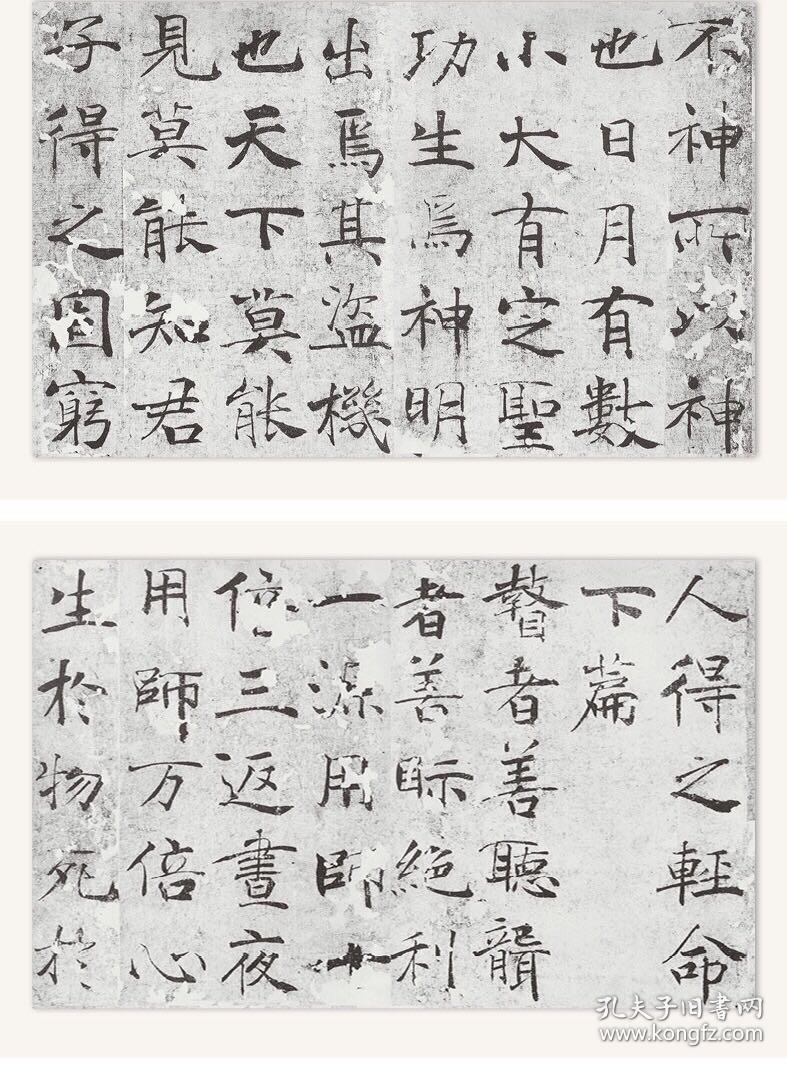 不神所以神
也日月有數
小大有定聖
功生焉神明
出焉其盜機
也天下莫能
見莫能知君
子得之固窮
人得之輕命
下篇
瞽者善聽聾
者善眎絕利
一源用師十
倍三返晝夜
用師万倍心
生於物死於
孔夫子旧书网
www.kongfz.com